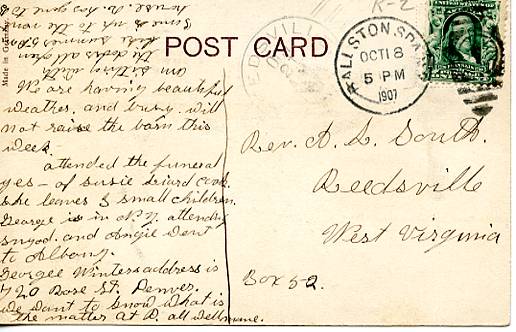 POST CARD
Made in Germany
K-2
BALLSTON SPA
OCT 18
5 PM
1907
REEDSVILLE
am sitting with
the doors all open
We are having beautiful
weather. and busy. will
not raise the barn this
week-
attended the funeral
yes - of Susie
she leaves 8 small children
George is in N.Y. attending
synod. and Angie went
to Albany.
Georgee Winters address is
720 Rose St. Denver.
We want to know what is
the matter at R. all well
Rev. A. L. South.
Reedsville
West Virginia
Box 52.